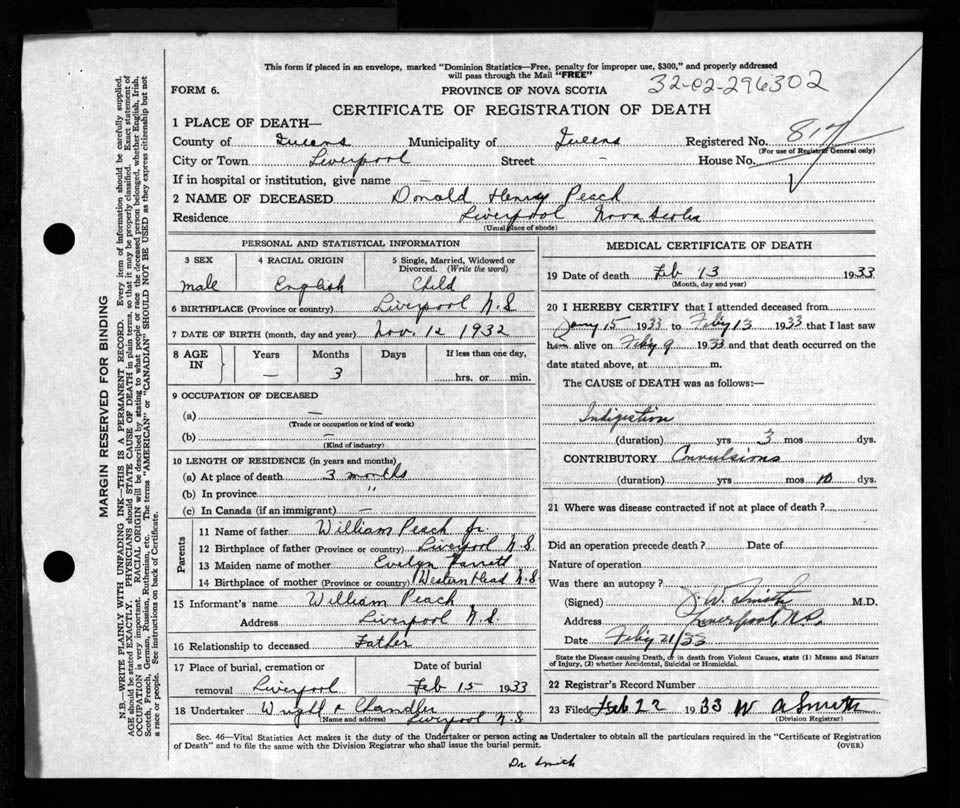 This form if placed in an envelope, marked "Dominion Statistics—Free, penalty for improper use, $300," and properly addressed
will pass through the Mail "FREE"
32-02-296302
FORM 6.
PROVINCE OF NOVA SCOTIA
CERTIFICATE OF REGISTRATION OF DEATH
1 PLACE OF DEATH—
County of Queens Municipality of Queens Registered No. 817
(For use of Registrar General only)
City or Town Liverpool Street - House No.
If in hospital or institution, give name —
2 NAME OF DECEASED Donald Henry Peach
Residence Liverpool Nova Scotia
(Usual place of abode)
PERSONAL AND STATISTICAL INFORMATION
3 SEX
male
4 RACIAL ORIGIN
English
5 Single, Married, Widowed or
Divorced. (Write the word)
Child
6 BIRTHPLACE (Province or country) Liverpool N.S
7 DATE OF BIRTH (month, day and year) Nov. 12 1932
8 AGE
IN
Years
—
Months
3
Days
If less than one day,
hrs. or min.
9 OCCUPATION OF DECEASED
(a) —
(Trade or occupation or kind of work)
(b) —
(Kind of industry)
10 LENGTH OF RESIDENCE (in years and months)
(a) At place of death 3 months
(b) In province "
(c) In Canada (if an immigrant) —
Parents
11 Name of father William Peach Jr.
12 Birthplace of father (Province or country) Liverpool N.S.
13 Maiden name of mother Evelyn
14 Birthplace of mother (Province or country) Western Head N.S
15 Informant's name William Peach
Address Liverpool N.S.
16 Relationship to deceased Father
17 Place of burial, cremation or
removal Liverpool
Date of burial
Feb 15 1933
18 Undertaker Wright & Chandler
(Name and address) Liverpool N.S
MEDICAL CERTIFICATE OF DEATH
19 Date of death Feb 13 1933
(Month, day and year)
20 I HEREBY CERTIFY that I attended deceased from
Jany 15 1933 to Feby 13 1933 that I last saw
him alive on Feby 9 1933 and that death occurred on the
date stated above, at m.
The CAUSE of DEATH was as follows:—
Indigestion
(duration) yrs 3 mos dys.
CONTRIBUTORY Convulsions
(duration) yrs mos 10 dys.
21 Where was disease contracted if not at place of death?
Did an operation precede death? Date of
Nature of operation
Was there an autopsy?
(Signed) J. W. Smith M.D.
Address Liverpool, N.S.
Date Feby 21/33
State the Disease causing Death, or in death from Violent Causes, state (1) Means and Nature
of Injury, (2) whether Accidental, Suicidal or Homicidal.
22 Registrar's Record Number
23 Filed Feb 22 1933 W A Smith
(Division Registrar)
Sec. 46—Vital Statistics Act makes it the duty of the Undertaker or person acting as Undertaker to obtain all the particulars required in the "Certificate of Registration
of Death" and to file the same with the Division Registrar who shall issue the burial permit.
(OVER)
Dr Smith
MARGIN RESERVED FOR BINDING
N.B.—WRITE PLAINLY WITH UNFADING INK—THIS IS A PERMANENT RECORD. Every item of information should be carefully supplied.
AGE should be stated EXACTLY. PHYSICIANS should STATE CAUSE OF DEATH in plain terms, so that it may be properly classified. Exact statement of
OCCUPATION is very important. RACIAL ORIGIN will be described by stating to what people or race the deceased person belonged, whether English, Irish,
Scotch, French, German, Russian, Ruthenian, etc. The terms "AMERICAN" or "CANADIAN" SHOULD NOT BE USED as they express citizenship but not
a race or people. See instructions on back of Certificate.